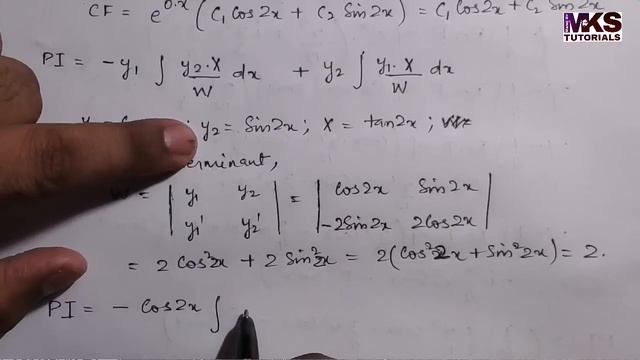 CF = e^{0.x} (C₁ Cos2x + C₂ Sin2x) = C₁ Cos2x + C₂ Sin2x
MKS
TUTORIALS
PI = -y₁ ∫ y₂.X/W dx + y₂ ∫ y₁.X/W dx
; y₂ = Sin2x ; X = tan2x ;
W = | y₁ y₂ | = | Cos2x Sin2x |
| y₁' y₂' | | -2Sin2x 2Cos2x |
= 2 Cos²2x + 2 Sin²2x = 2(Cos²2x + Sin²2x) = 2.
PI = - Cos2x ∫